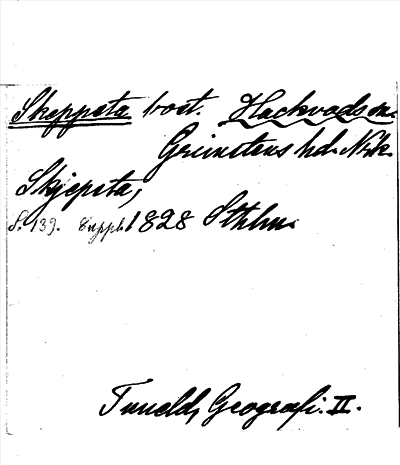 Skeppsta bost. Hackvads sn.
Grimstens hd. Nrk.
Skjepsta,
S. 139. Suppl. 1828 Sthlm.
Tuneld, Geografi. II.